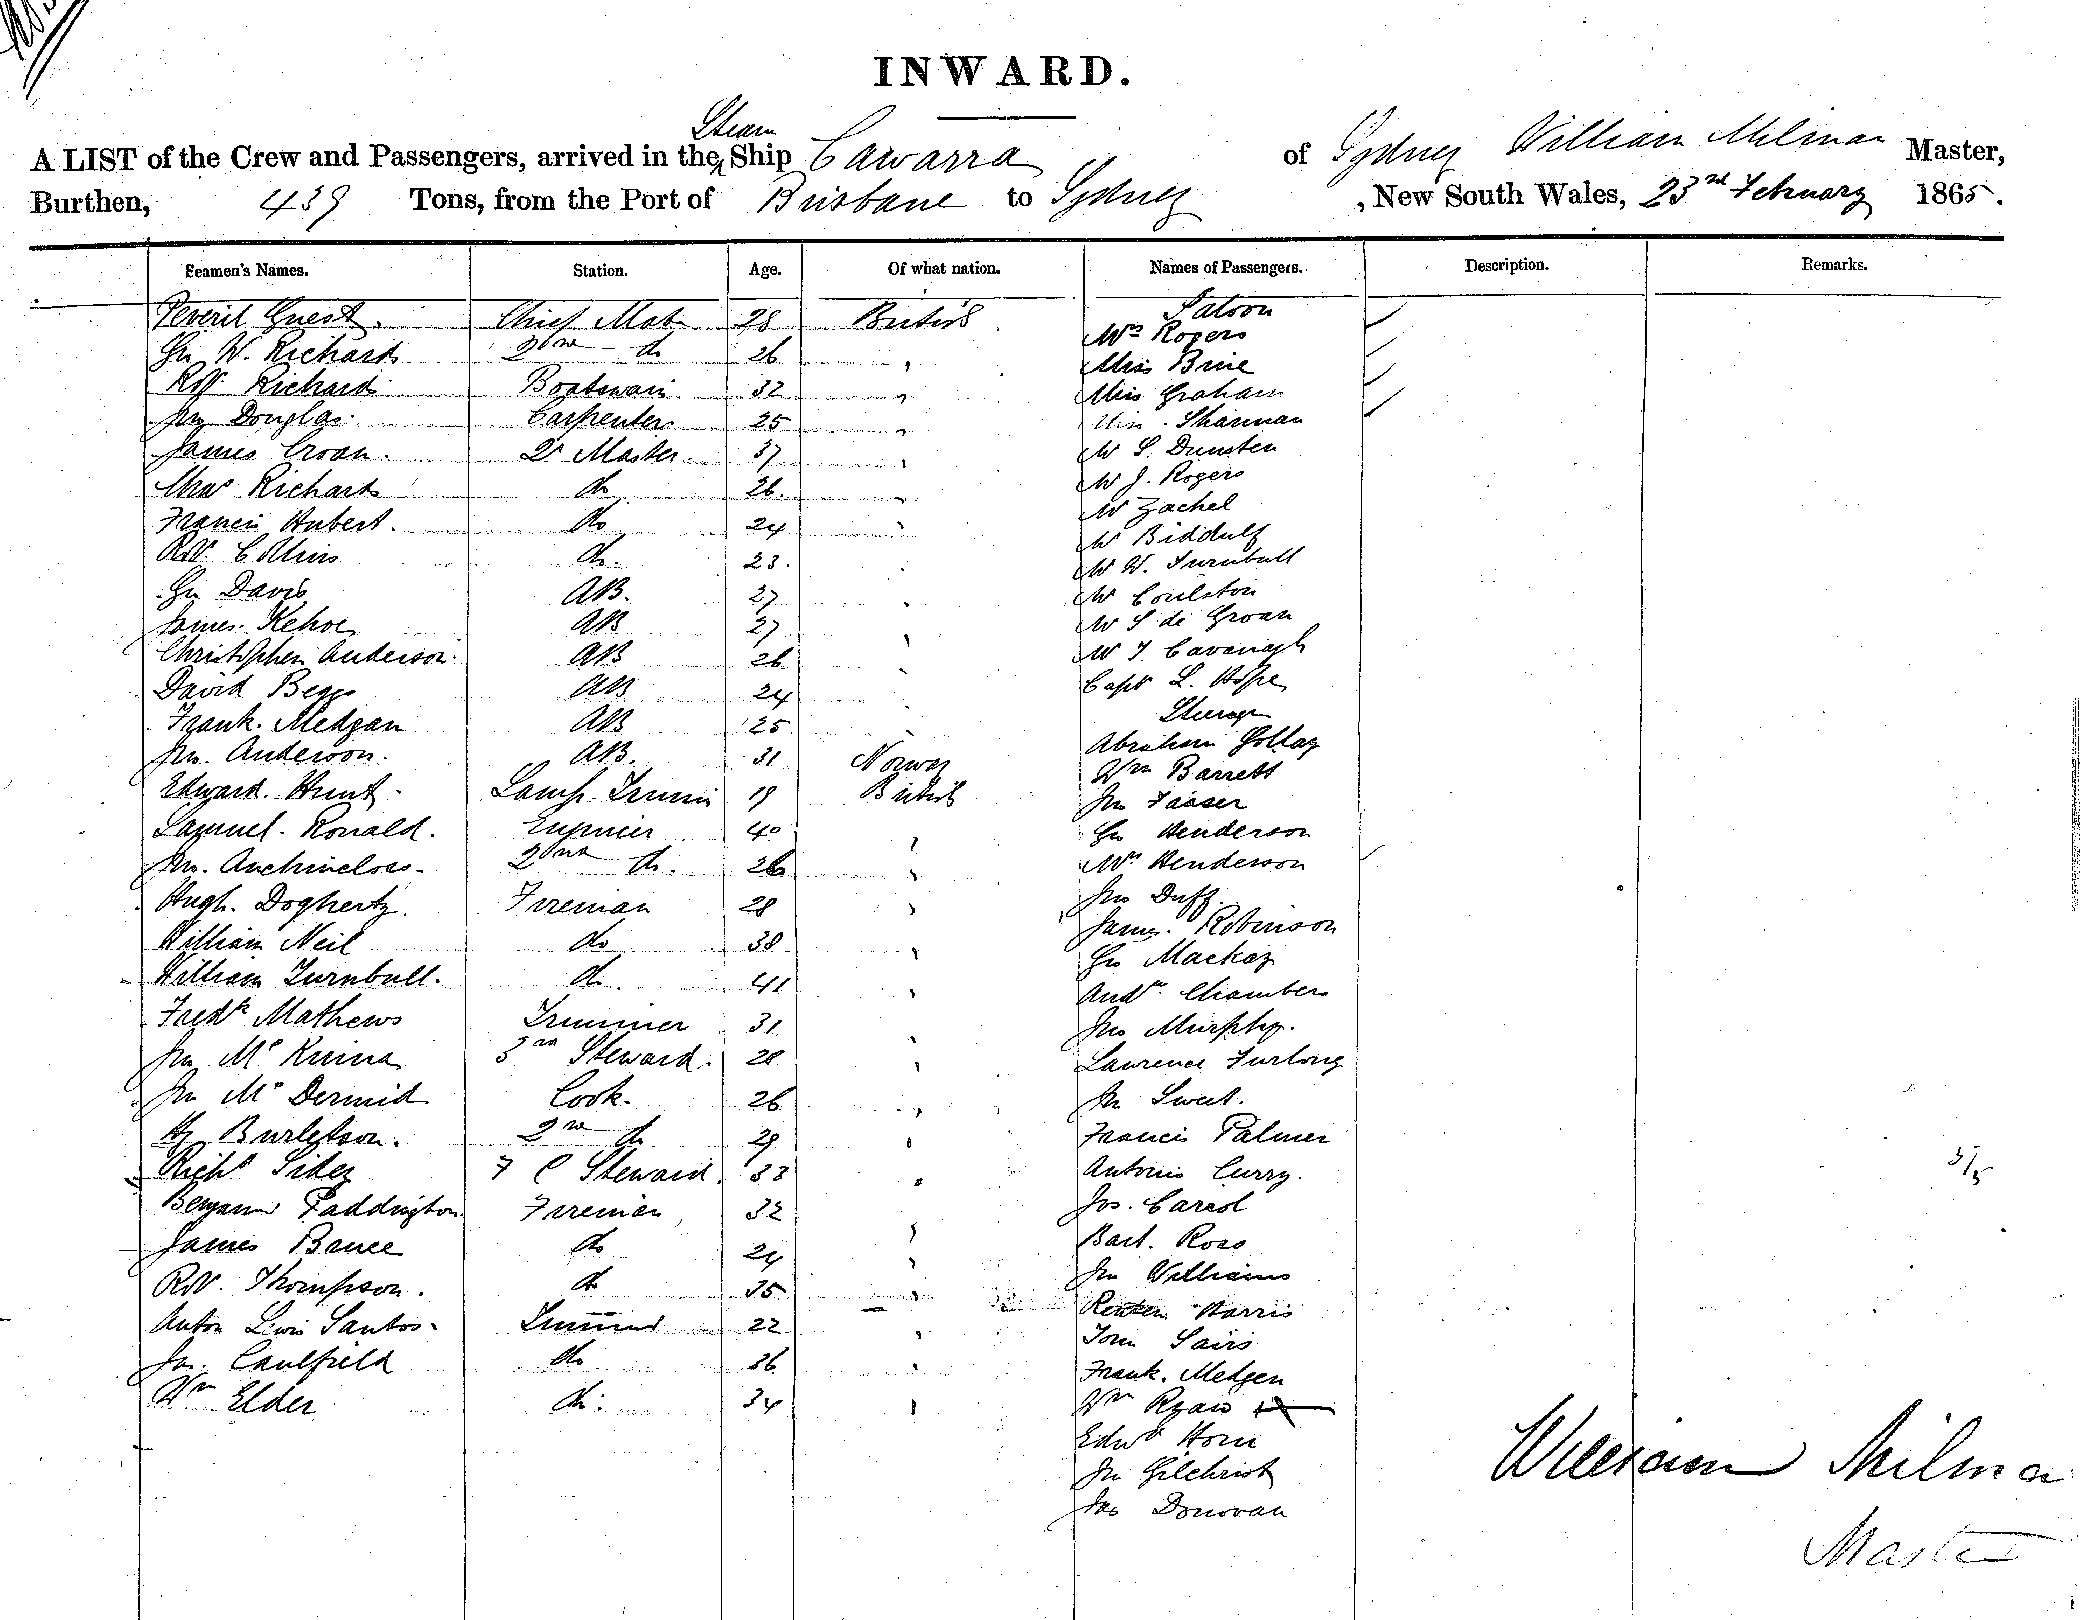 INWARD.
Steam
A LIST of the Crew and Passengers, arrived in the Ship Cawarra of Sydney William Milman Master,
Burthen, 439 Tons, from the Port of Brisbane to Sydney, New South Wales, 23rd February 1865.
Seamen's Names. Station. Age. Of what nation. Names of Passengers. Description. Remarks.
Saloon
Peveril Guest. Chief Mate 28 British Mrs Rogers
Geo W. Richards 2nd do 26 " Miss Brie
Robt Richards Boatswain 32 " Miss Graham
Jno Douglas. Carpenter 25 " Miss Sharman
James Croan. Qr Master 37 " Mr S. Dunsten
Chas Richards do 26 " Mr J. Rogers
Francis Hubert. do 24 " Mr Zachel
Robt Collins do. 23. " Mr Biddulf
Mr W. Turnbull
Geo Davis AB. 27 " Mr Coulston
James Kehoe AB 27 " Mr S de Groan
Christopher Anderson AB 26 " Mr T Cavanagh
David Beggs AB 24 " Capt L. Hope
Steerage
Frank. Medgan AB 25 Abraham Gollag
Jno. Anderson. AB. 31 Norway Wm Barrett
Edward. Hunt. Lamp Trimr 19 British Jno
Samuel. Ronald. Engineer 40 " Geo Henderson
Jno. Auchincloss. 2nd do. 26 " Mrs Henderson
Hugh. Dogherty. Fireman 28 " Jno Duff.
William Neil do 38 " James. Robinson
William Turnbull. do. 41 " Geo Mackay
Andw. Chambers
Fredk Mathews Trimmer 31 " Jno Murphy.
Jno Mc 3rd Steward. 28 " Laurence Furlong
Jno McDermid Cook. 26 " Jno Sweet.
Hy Burletson. 2nd do 29 " Francis Palmer
Richd Sidey F C Steward. 33 " Antonio Curry.
Benjamin Paddington Fireman 32 " Jos. Carrol
James Bruce do 24 " Bart. Ross
Robt. Thompson. do 35 " Jno Williams
Reuben Harris
Anton Lewis Santos. Trimmer 22 " Tom Sairs
Jas. Caulfield do 36 " Frank. Medgen
Wm Elder do. 34 " Wm Ryan
Edwd Horn
Jno Gilchrist
Jas Donovan
William Milman
Master